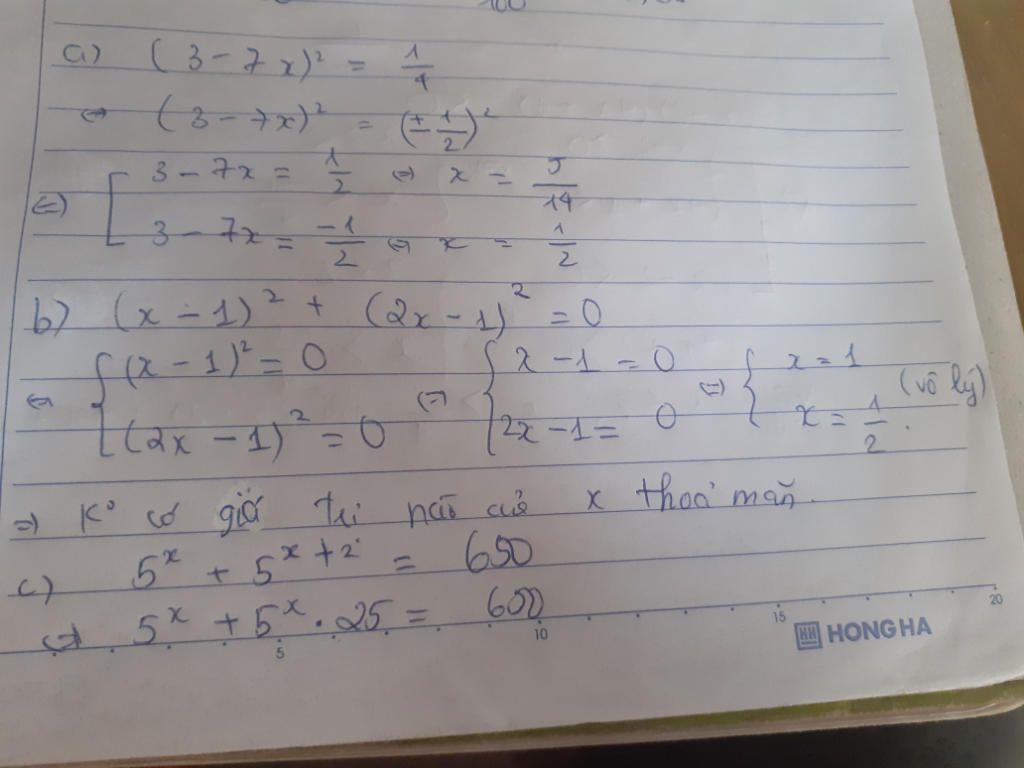 100
a) (3 - 7x)² = 1/4
⇔ (3 - 7x)² = (± 1/2)²
⇔ [ 3 - 7x = 1/2 ⇔ x = 5/14
3 - 7x = -1/2 ⇔ x = 1/2
b) (x - 1)² + (2x - 1)² = 0
⇔ { (x - 1)² = 0 ⇔ { x - 1 = 0 ⇔ { x = 1 (vô lý)
(2x - 1)² = 0 2x - 1 = 0 x = 1/2.
⇒ K° có giá trị nào của x thoả mãn.
c) 5^x + 5^(x+2) = 650
⇔ 5^x + 5^x . 25 = 650
5 10 15 20
HH HONG HA